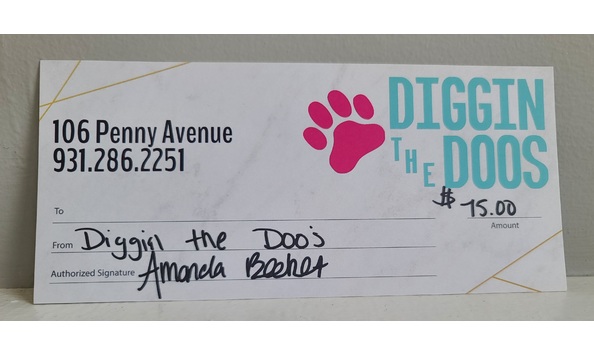 DIGGIN
THE DOOS
106 Penny Avenue
931.286.2251
To
$ 75.00
Amount
From Diggin the Doo's
Authorized Signature Amanda